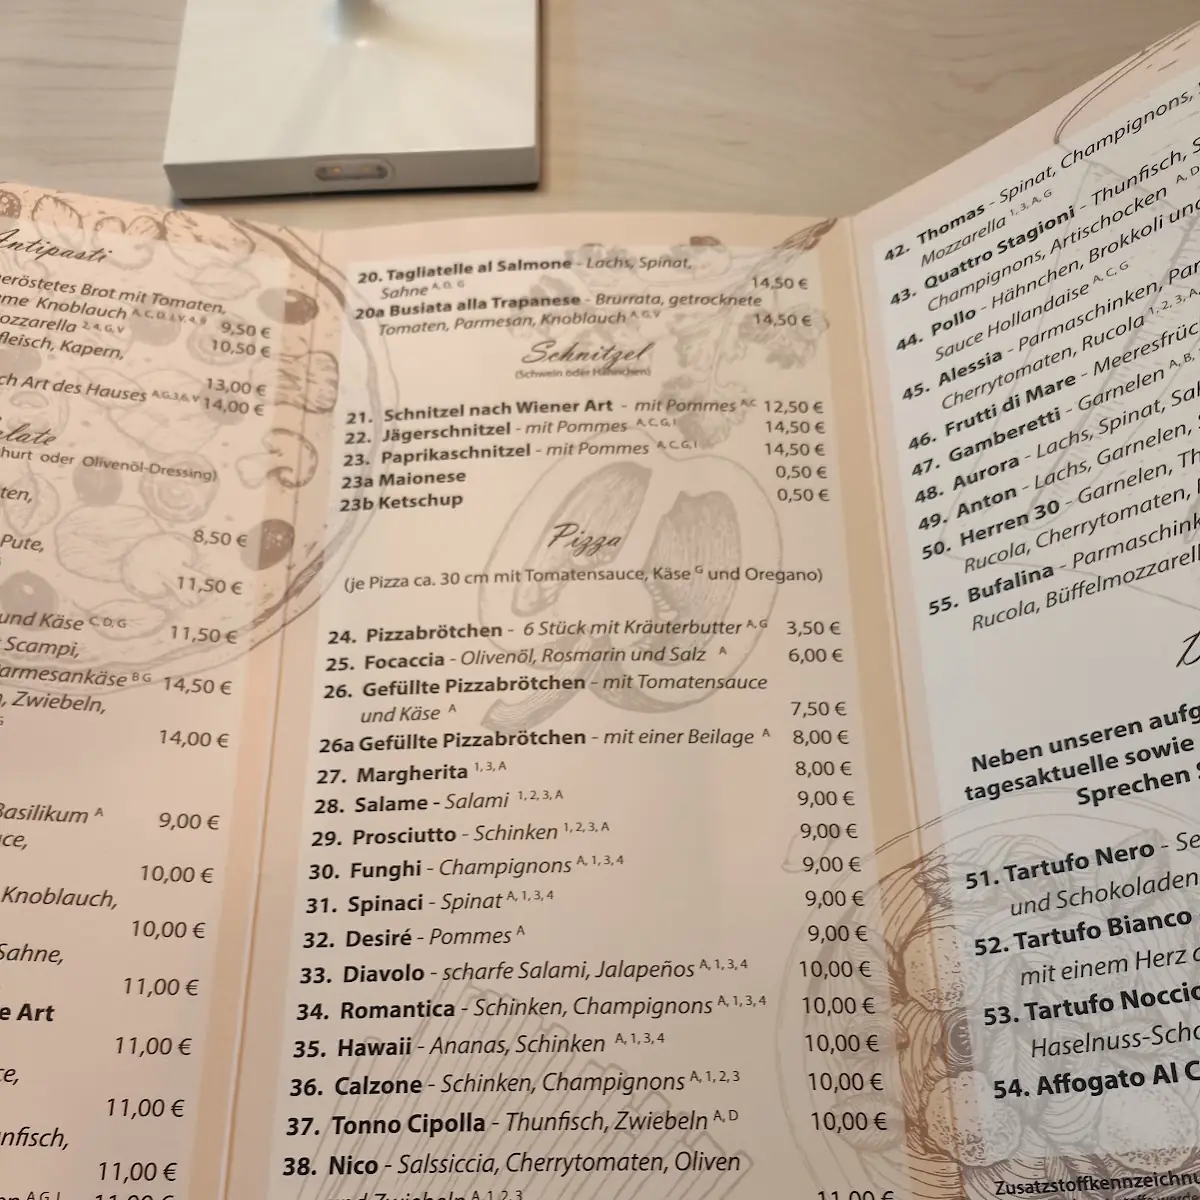 Antipasti
eröstetes Brot mit Tomaten,
Knoblauch A, C, D, 4, V, 4, 9 9,50 €
ozzarella 2, 4, G, V 10,50 €
fleisch, Kapern,
13,00 €
ch Art des Hauses A,G,3,6,V 14,00 €
hurt oder Olivenöl-Dressing)
ten,
8,50 €
Pute,
11,50 €
und Käse C, D, G 11,50 €
Scampi,
armesankäse B G 14,50 €
, Zwiebeln,
14,00 €
Basilikum A 9,00 €
ce,
10,00 €
Knoblauch,
10,00 €
Sahne,
11,00 €
e Art
11,00 €
ce,
11,00 €
nfisch,
11,00 €
20. Tagliatelle al Salmone - Lachs, Spinat,
Sahne A, D, G 14,50 €
20a Busiata alla Trapanese - Brurrata, getrocknete
Tomaten, Parmesan, Knoblauch A, G, V 14,50 €
Schnitzel
(Schwein oder Hähnchen)
21. Schnitzel nach Wiener Art - mit Pommes A,C 12,50 €
22. Jägerschnitzel - mit Pommes A, C, G, I 14,50 €
23. Paprikaschnitzel - mit Pommes A, C, G, I 14,50 €
23a Maionese 0,50 €
23b Ketschup 0,50 €
Pizza
(je Pizza ca. 30 cm mit Tomatensauce, Käse G und Oregano)
24. Pizzabrötchen - 6 Stück mit Kräuterbutter A, G 3,50 €
25. Focaccia - Olivenöl, Rosmarin und Salz A 6,00 €
26. Gefüllte Pizzabrötchen - mit Tomatensauce
und Käse A 7,50 €
26a Gefüllte Pizzabrötchen - mit einer Beilage A 8,00 €
27. Margherita 1, 3, A 8,00 €
28. Salame - Salami 1, 2, 3, A 9,00 €
29. Prosciutto - Schinken 1, 2, 3, A 9,00 €
30. Funghi - Champignons A, 1, 3, 4 9,00 €
31. Spinaci - Spinat A, 1, 3, 4 9,00 €
32. Desiré - Pommes A 9,00 €
33. Diavolo - scharfe Salami, Jalapeños A, 1, 3, 4 10,00 €
34. Romantica - Schinken, Champignons A, 1, 3, 4 10,00 €
35. Hawaii - Ananas, Schinken A, 1, 3, 4 10,00 €
36. Calzone - Schinken, Champignons A, 1, 2, 3 10,00 €
37. Tonno Cipolla - Thunfisch, Zwiebeln A, D 10,00 €
38. Nico - Salssiccia, Cherrytomaten, Oliven
und Zwiebeln A, 1, 2, 3 11,00 €
42. Thomas - Spinat, Champignons,
Mozzarella 1, 3, A, G
43. Quattro Stagioni - Thunfisch, S
Champignons, Artischocken A, D
44. Pollo - Hähnchen, Brokkoli und
Sauce Hollandaise A, C, G
45. Alessia - Parmaschinken, Par
Cherrytomaten, Rucola 1, 2, 3, A,
46. Frutti di Mare - Meeresfrüc
47. Gamberetti - Garnelen A, B,
48. Aurora - Lachs, Spinat, Sal
49. Anton - Lachs, Garnelen, S
50. Herren 30 - Garnelen, Th
Rucola, Cherrytomaten,
55. Bufalina - Parmaschink
Rucola, Büffelmozzarell
Neben unseren aufg
tagesaktuelle sowie
Sprechen S
51. Tartufo Nero - Se
und Schokoladen
52. Tartufo Bianco
mit einem Herz
53. Tartufo Noccio
Haselnuss-Scho
54. Affogato Al C
Zusatzstoffkennzeichn